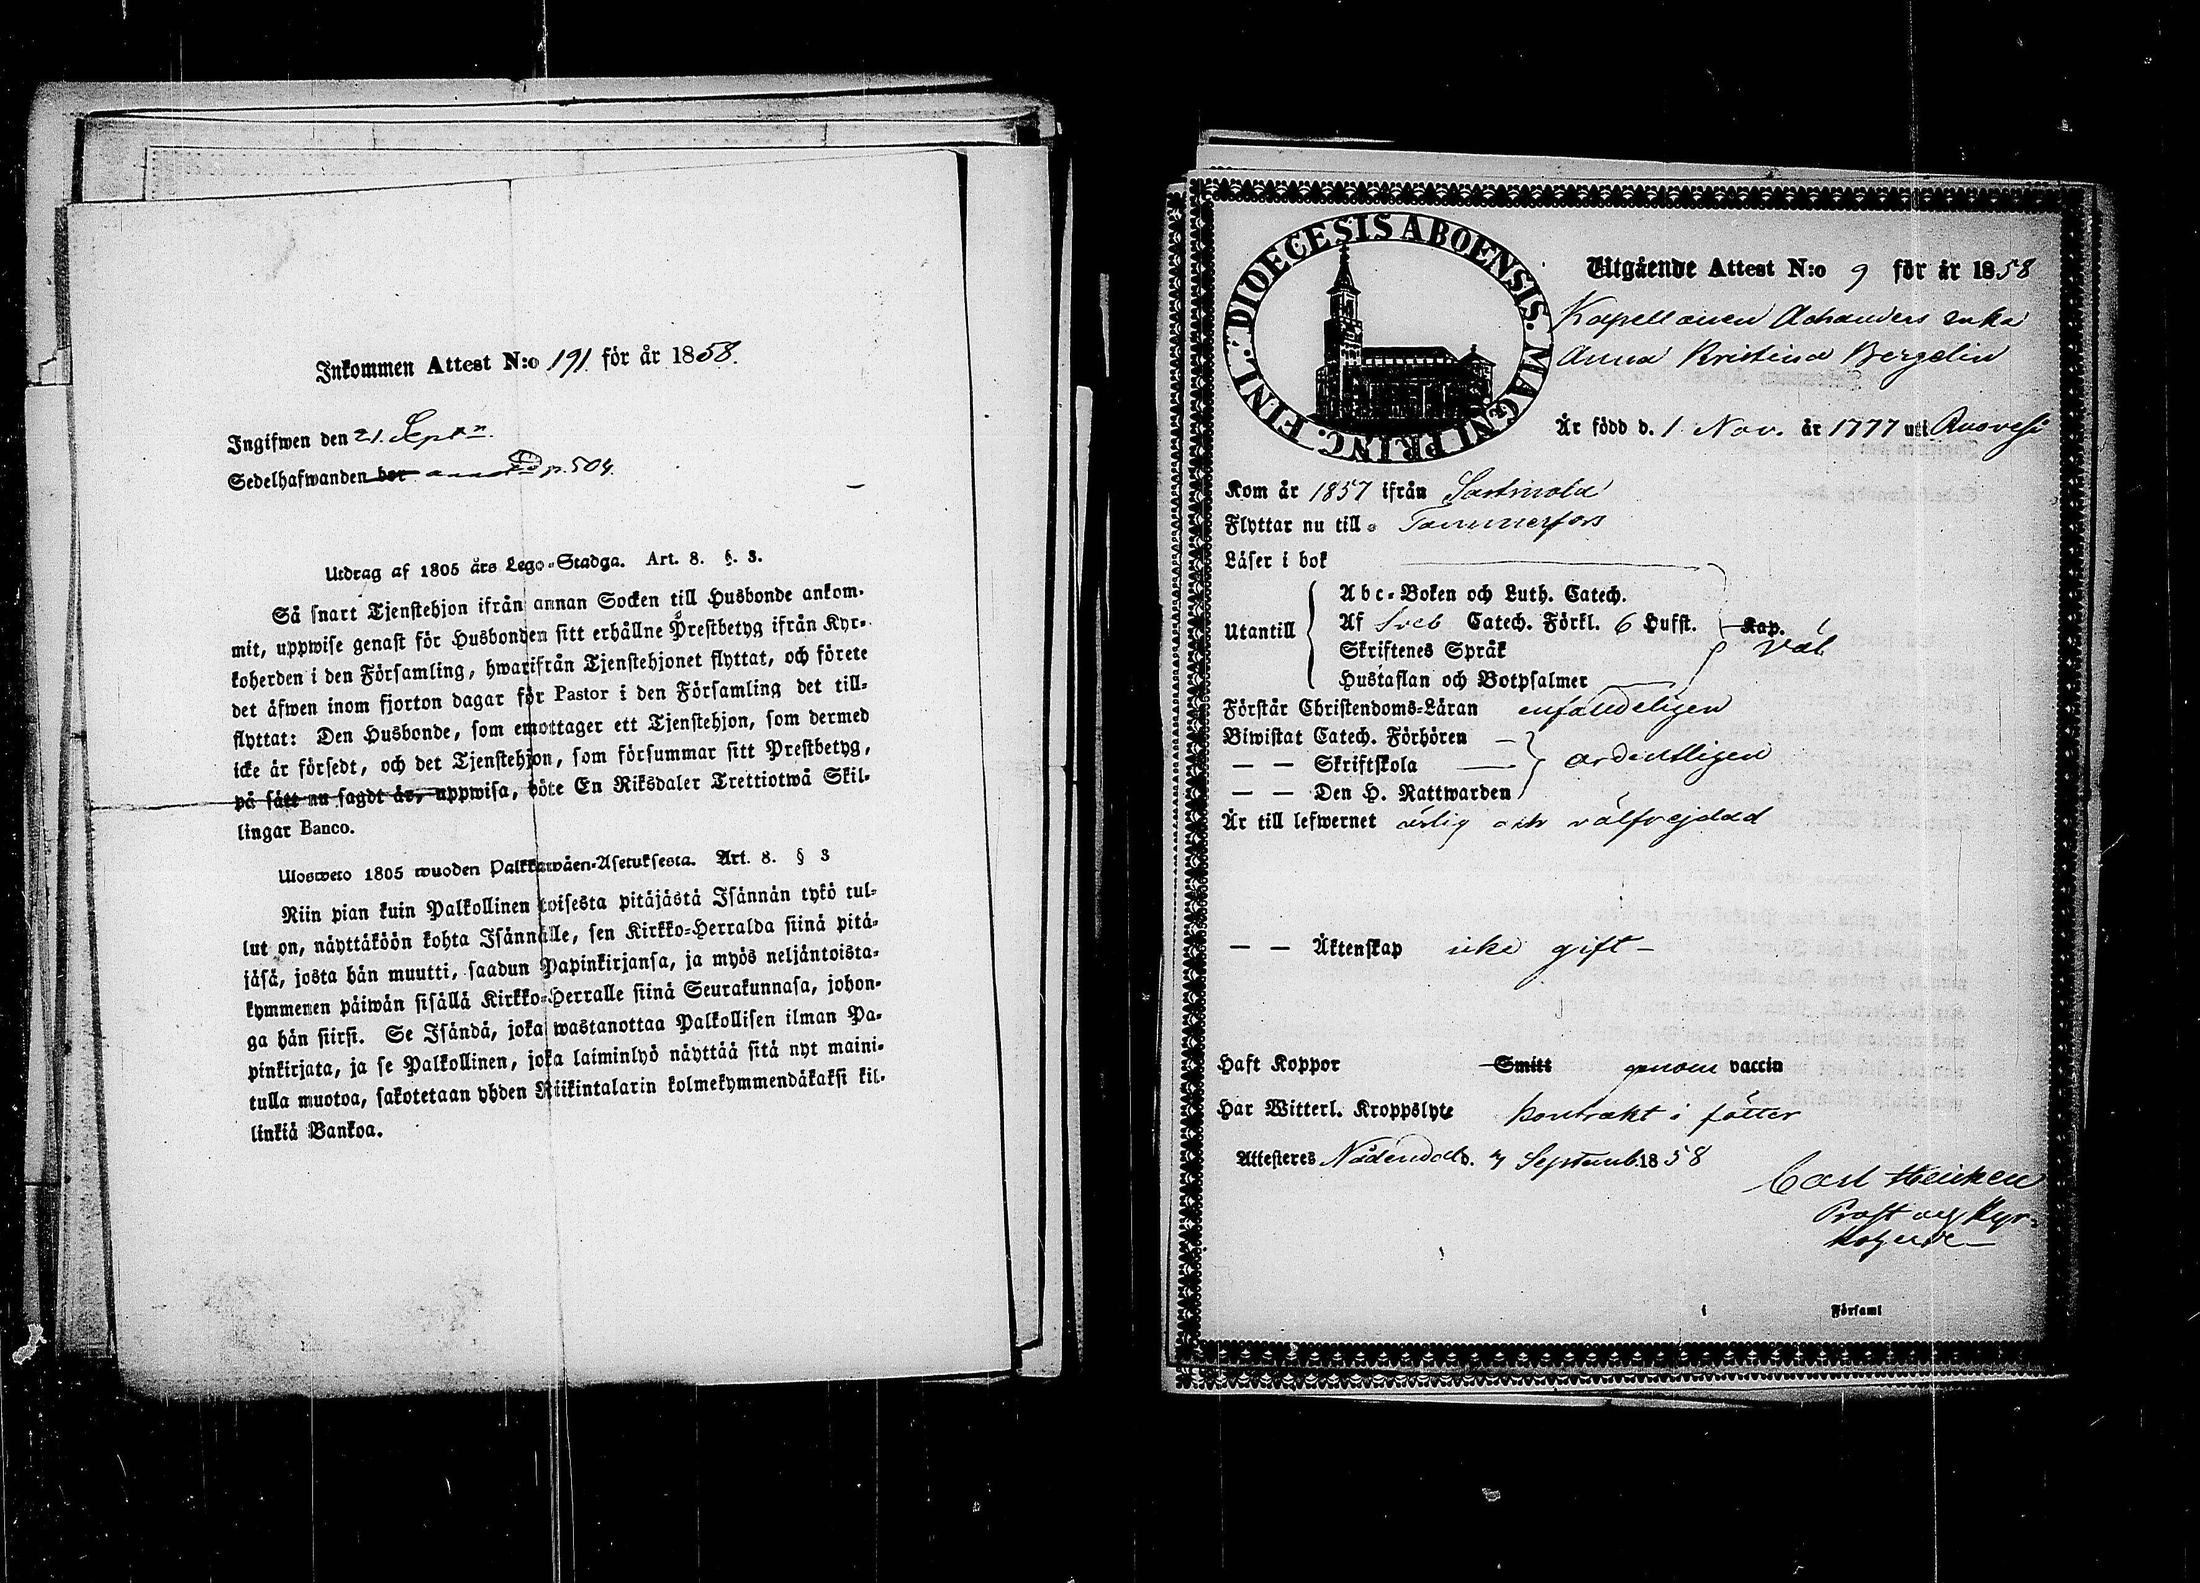 Inkommen Attest N:o 191 för år 1858.
Ingifwen den 21. Sept.
Sedelhafwanden bor p. 504.
Utdrag af 1805 års Lego-Stadga. Art. 8. §. 3.
Så snart Tjenstehjon ifrån annan Socken till Husbonde ankom-
mit, uppwise genast för Husbonden sitt erhållne Prestbetyg ifrån Kyr-
koherden i den Församling, hwarifrån Tjenstehjonet flyttat, och förete
det äfwen inom fjorton dagar för Pastor i den Församling det till-
flyttat: Den Husbonde, som emottager ett Tjenstehjon, som dermed
icke är försedt, och det Tjenstehjon, som försummar sitt Prestbetyg,
på sätt nu sagdt är, uppwisa, böte En Riksdaler Trettiotwå Skil-
lingar Banco.
Ulosweto 1805 wuoden Palkkawäen-Asetuksesta. Art. 8. § 3
Niin pian kuin Palkollinen toisesta pitäjästä Isännän tykö tul-
lut on, näyttäköön kohta Isännälle, sen Kirkko-Herralda siinä pitä-
jäsä, josta hän muutti, saadun Papinkirjansa, ja myös neljäntoista-
kymmenen päiwän sisällä Kirkko-Herralle siinä Seurakunnasa, johon-
ga hän siirsi. Se Isändä, joka wastanottaa Palkollisen ilman Pa-
pinkirjata, ja se Palkollinen, joka laiminlyö näyttää sitä nyt maini-
tulla muotoa, sakotetaan yhden Riikintalarin kolmekymmendäkaksi kil-
linkiä Bankoa.
FINL. DIOECESIS ABOENSIS. MAGNI PRINC.
Utgående Attest N:o 9 för år 1858
Kapellanen Achanders enka
Anna Kristina Bergelin
Är född d. 1 Nov. år 1777 uti Ruovesi
Kom år 1857 ifrån Sastmola
Flyttar nu till Tammerfors
Läser i bok
Utantill
Abc-Boken och Luth. Catech.
Af Sveb Catech. Förkl. 6 Hufst. Kap.
Skriftenes Språk väl
Hustaflan och Botpsalmer
Förstår Christendoms-Läran enfaldeligen
Biwistat Catech. Förhören
— — Skriftskola ordentligen
— — Den H. Nattwarden
Är till lefwernet ärlig och välfrejdad
— — Äktenskap icke gift —
Haft Koppor Smitt genom vaccin
Har Witterl. Kroppslyte Kontrakt i fötter
Attesteres Nådendal d. 7 Septemb. 1858
Carl Heicken
Prost och Kyr-
koherde —
i Församl